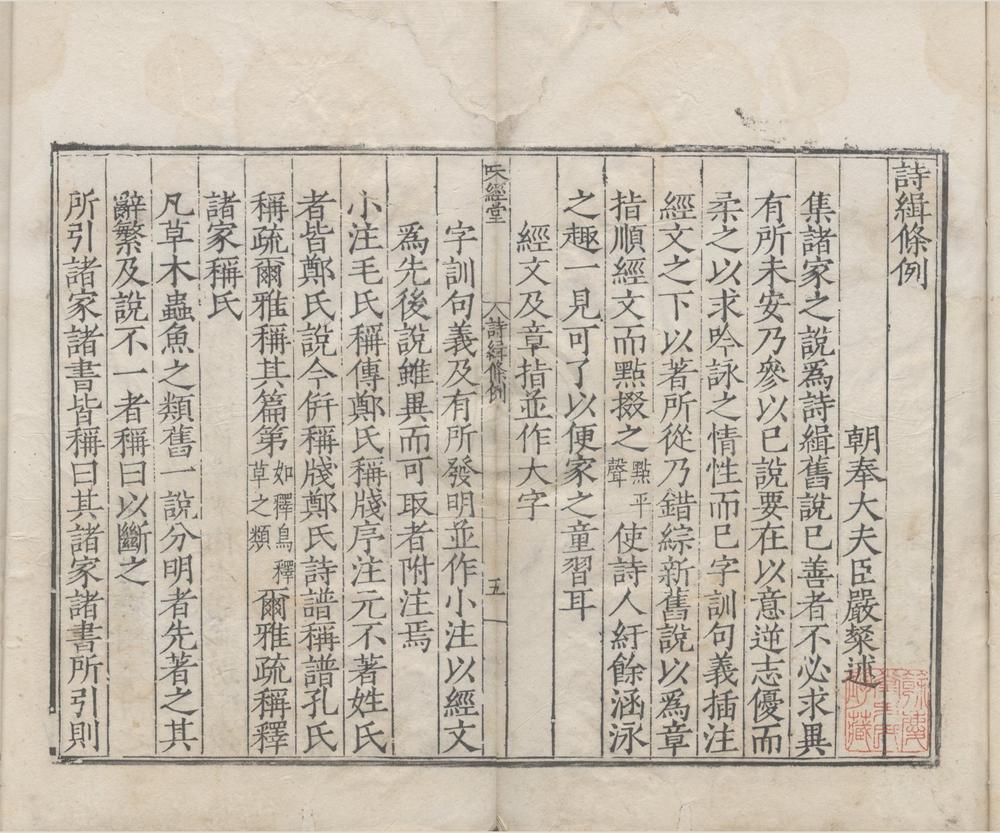 詩緝條例
朝奉大夫臣嚴粲述
集諸家之說爲詩緝舊說已善者不必求異
有所未安乃參以己說要在以意逆志優而
柔之以求吟詠之情性而已字訓句義插注
經文之下以著所從乃錯綜新舊說以爲章
指順經文而點掇之點平聲使詩人紆餘涵泳
之趣一見可了以便家之童習耳
經文及章指並作大字
味經堂
詩緝條例
五
字訓句義及有所發明並作小注以經文
爲先後說雖異而可取者附注焉
小注毛氏稱傳鄭氏稱牋序注元不著姓氏
者皆鄭氏說今併稱牋鄭氏詩譜稱譜孔氏
稱疏爾雅稱其篇第如釋鳥釋草之類爾雅疏稱釋
諸家稱氏
凡草木蟲魚之類舊一說分明者先著之其
辭繁及說不一者稱曰以斷之
所引諸家諸書皆稱曰其諸家諸書所引則